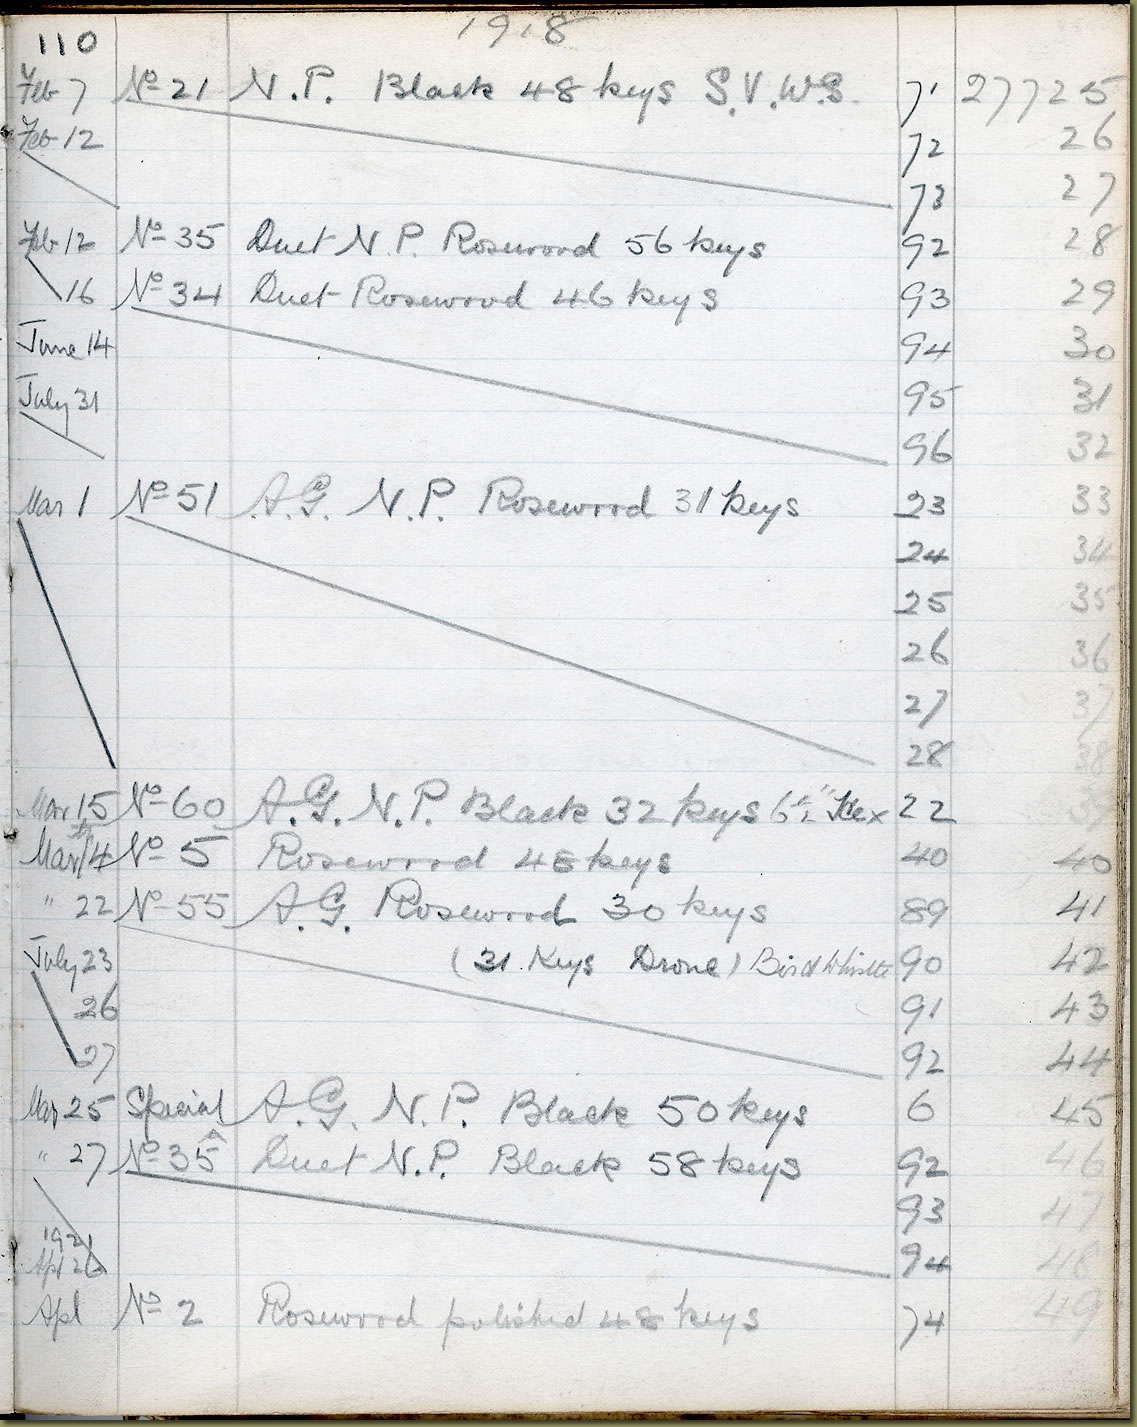 110 1918
Feb 7 No 21 N.P. Black 48 keys S.V.W.S. 71 27725
Feb 12 72 26
73 27
Feb 12 No 35 Duet N.P. Rosewood 56 keys 92 28
16 No 34 Duet Rosewood 46 keys 93 29
June 14 94 30
July 31 95 31
96 32
Mar 1 No 51 A.G. N.P. Rosewood 31 keys 23 33
24 34
25 35
26 36
27 37
28 38
Mar 15 No 60 A.G. N.P. Black 32 keys 6½" Hex 22 39
Mar 14th No 5 Rosewood 48 keys 40 40
" 22 No 55 A.G. Rosewood 30 keys 89 41
July 23 (31 Keys Drone) Bird Whistle 90 42
26 91 43
27 92 44
Mar 25 Special A.G. N.P. Black 50 keys 6 45
" 27 No 35A Duet N.P. Black 58 keys 92 46
93 47
1921
Apl 26 94 48
Apl No 2 Rosewood polished 48 keys 74 49